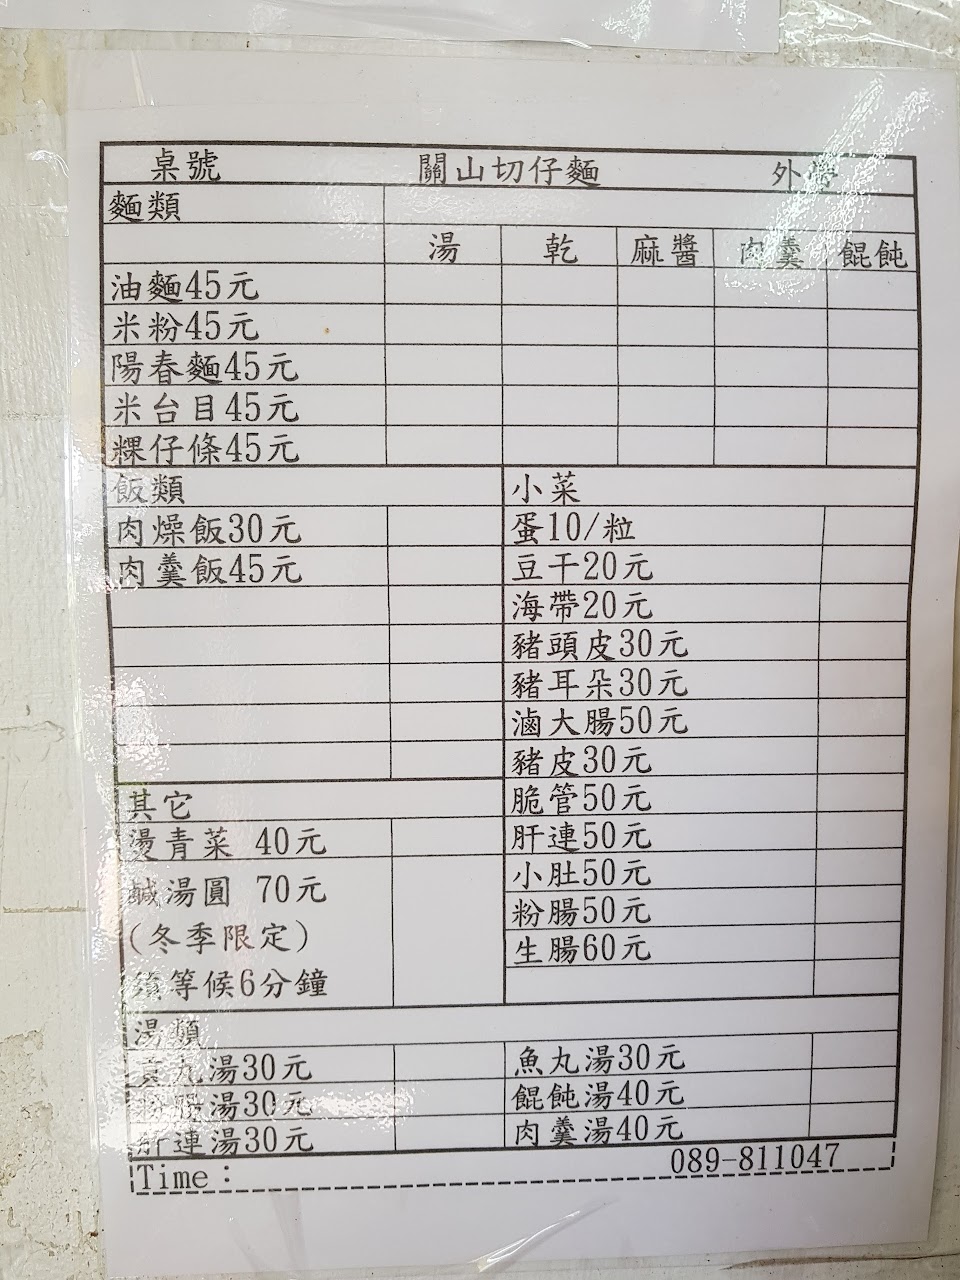 桌號 關山切仔麵 外帶
麵類
湯 乾 麻醬 肉羹 餛飩
油麵45元
米粉45元
陽春麵45元
米台目45元
粿仔條45元
飯類
肉燥飯30元
肉羹飯45元
小菜
蛋10/粒
豆干20元
海帶20元
豬頭皮30元
豬耳朵30元
滷大腸50元
豬皮30元
脆管50元
肝連50元
小肚50元
粉腸50元
生腸60元
其它
燙青菜 40元
鹹湯圓 70元
(冬季限定)
須等候6分鐘
湯類
貢丸湯30元 魚丸湯30元
粉腸湯30元 餛飩湯40元
肝連湯30元 肉羹湯40元
Time： 089-811047